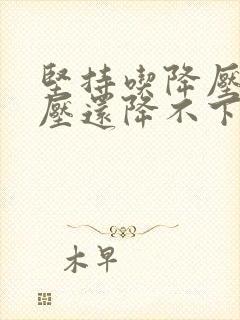 堅持喫降壓
壓還降不下
木早